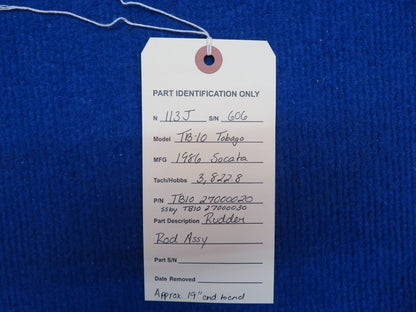 PART IDENTIFICATION ONLY
N 113J S/N 606
Model TB-10 Tobago
MFG 1986 Socata
Tach/Hobbs 3,822.8
P/N TB10 27000020
SS by TB10 27000030
Part Description Rudder
Rod Assy
Part S/N
Date Removed
Approx. 19" end to end